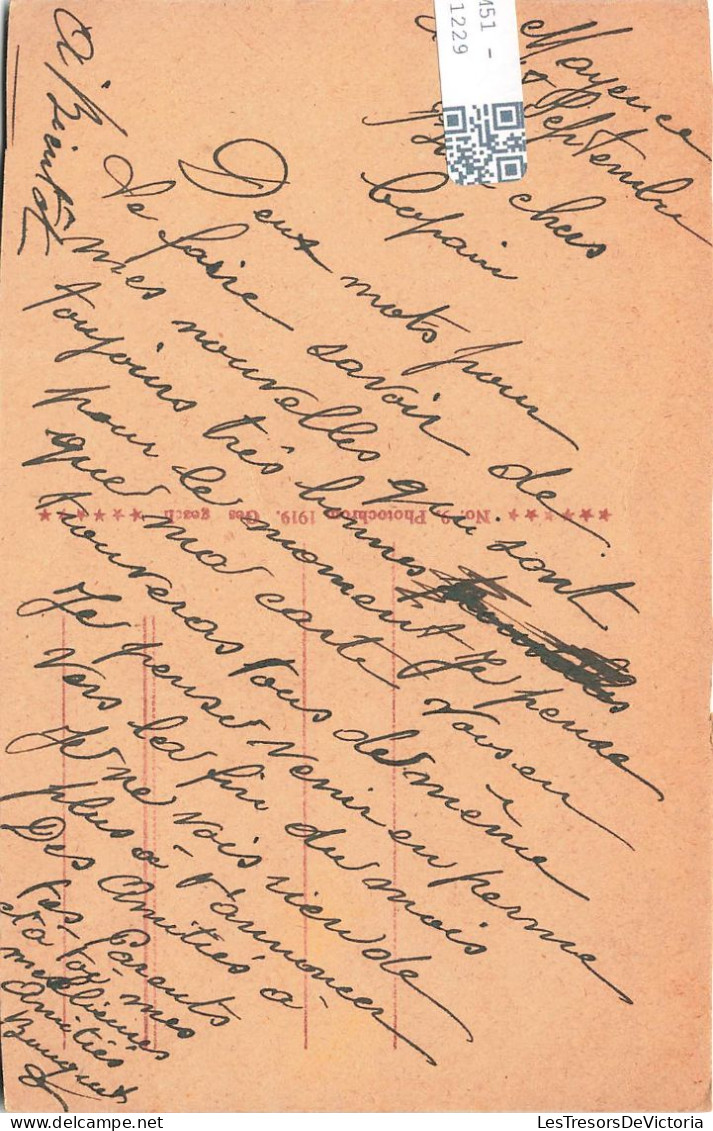 Mayence
Septembre
chers
Copain
Deux mots pour
te faire savoir de
mes nouvelles qui sont
toujours très bonnes
pour le moment Je pense
que ma carte vous en
trouveras tous de même
Je pense venir en perme
vers la fin du mois
Je ne vois rien de
plus à t'annoncer
Des Amitiés à
tes Parents
et à toi mes
meilleures
Amitiés
Bouquet
A Bientôt
No. 9 Photochrom 1919. Ges gesch
M51 -
1229
LesTresorsDeVictoria